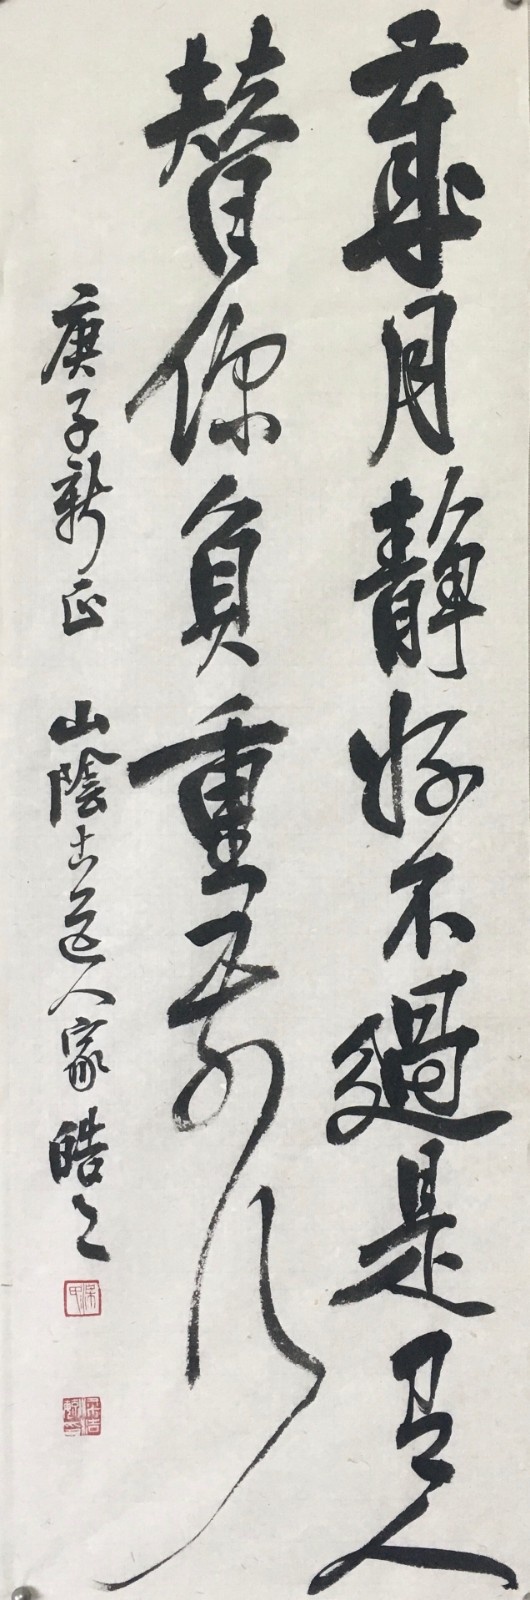 歲月靜好不過是有人
替你負重前行
庚子新正 山陰古道人家皓之